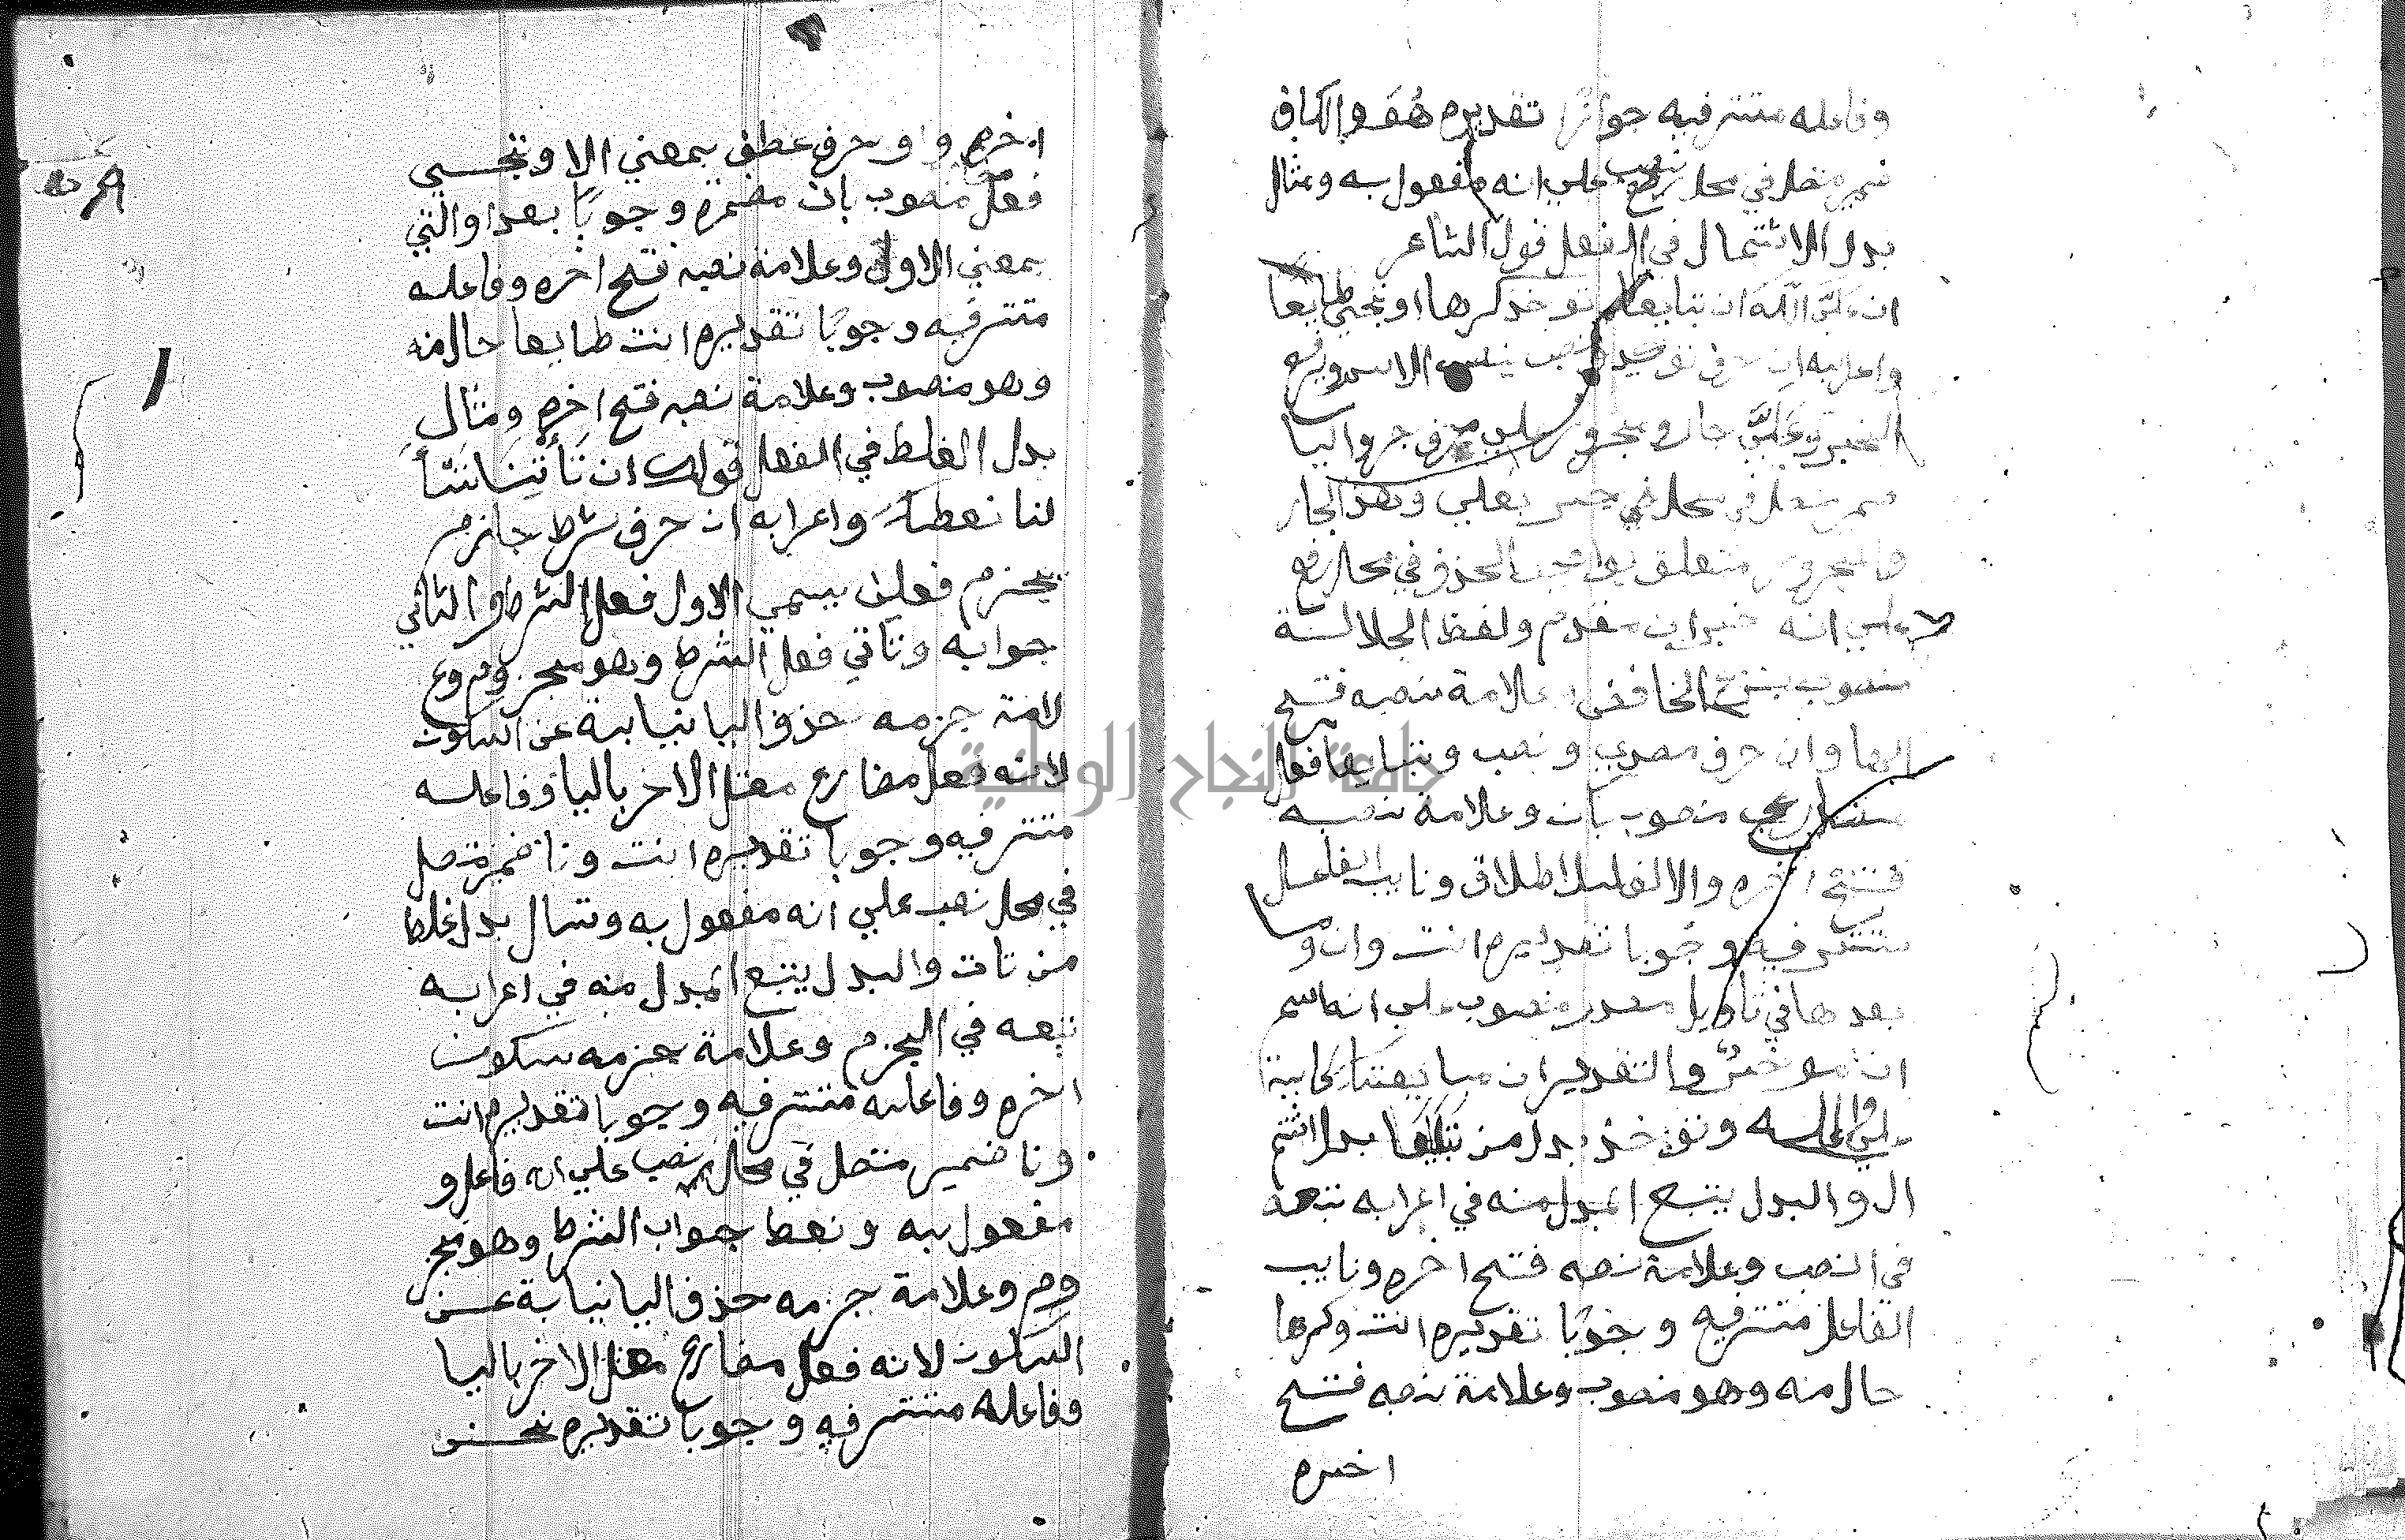 وفاعله مستتر فيه جوازا تقديره هُوَ والكاف
ضمير متصل في محل نصب علي انه مفعول به ومثال
بدل الاشتمال في الفعل قول الشاعر
ان عَلَيَّ اللهَ ان تبايعا توخذ كرها او تجي طايعا
واعرابه ان حرف توكيد ونصب ينصب الاسم ويرفع
الخبر وعَلَيَّ جار ومجرور علي حرف جر واليا
ضمير متصل في محل جر بعلي وهذا الجار
والمجرور متعلق بواجب الحذف في محل رفع
علي انه خبر ان مقدم ولفظ الجلالة
منصوب بنزع الخافض وعلامة نصبه فتح
الها وان حرف مصدري ونصب وتبايعا فعل
مضارع منصوب بان وعلامة نصبه
فتح اخره والالف للاطلاق ونايب الفاعل
مستتر فيه وجوبا تقديره انت وان وما
بعدها في تاويل مصدر منصوب علي انه اسم
ان موخر والتقدير ان مبايعتك كاينة
علي والله وتوخذ بدل من تبايعا بدل اشتم
ال والبدل يتبع المبدل منه في اعرابه تبعه
في النصب وعلامة نصبه فتح اخره ونايب
الفاعل مستتر فيه وجوبًا تقديره انت وكرها
حال منه وهو منصوب وعلامة نصبه فتح
اخره
اخره واو حرف عطف بمعني الا وتجي
فعل منصوب بان مضمره وجوبًا بعد او التي
بمعني الاول وعلامة نصبه فتح اخره وفاعله
مستتر فيه وجوبًا تقديره انت طايعا حال منه
وهو منصوب وعلامة نصبه فتح اخره ومثال
بدل الغلط في الفعل قولك ان تَأتِنَا تسَأل
لنا نعطك واعرابه ان حرف شرط جازم
يجزم فعلين يسمي الاول فعل الشرط والثاني
جوابه وتاتي فعل الشرط وهو مجزوم وع
لامة جزمه حذف اليا نيابة عن السكون
لانه فعل مضارع معتل الاخر باليا وفاعله
مستتر فيه وجوبا تقديره انت ونا ضمير متصل
في محل نصب علي انه مفعول به وتسال بدل غلط
من تات والبدل يتبع المبدل منه في اعرابه
تبعه في الجزم وعلامة جزمه سكون
اخره وفاعله مستتر فيه وجوبا تقديره انت
ونا ضمير متصل في محل نصب علي انه فاعل و
مفعول به ونعط جواب الشرط وهو مجز
وم وعلامة جزمه حذف اليا نيابة عن
السكون لانه فعل مضارع معتل الاخر باليا
وفاعله مستتر فيه وجوبا تقديره نحن
جامعة النجاح الوطنية